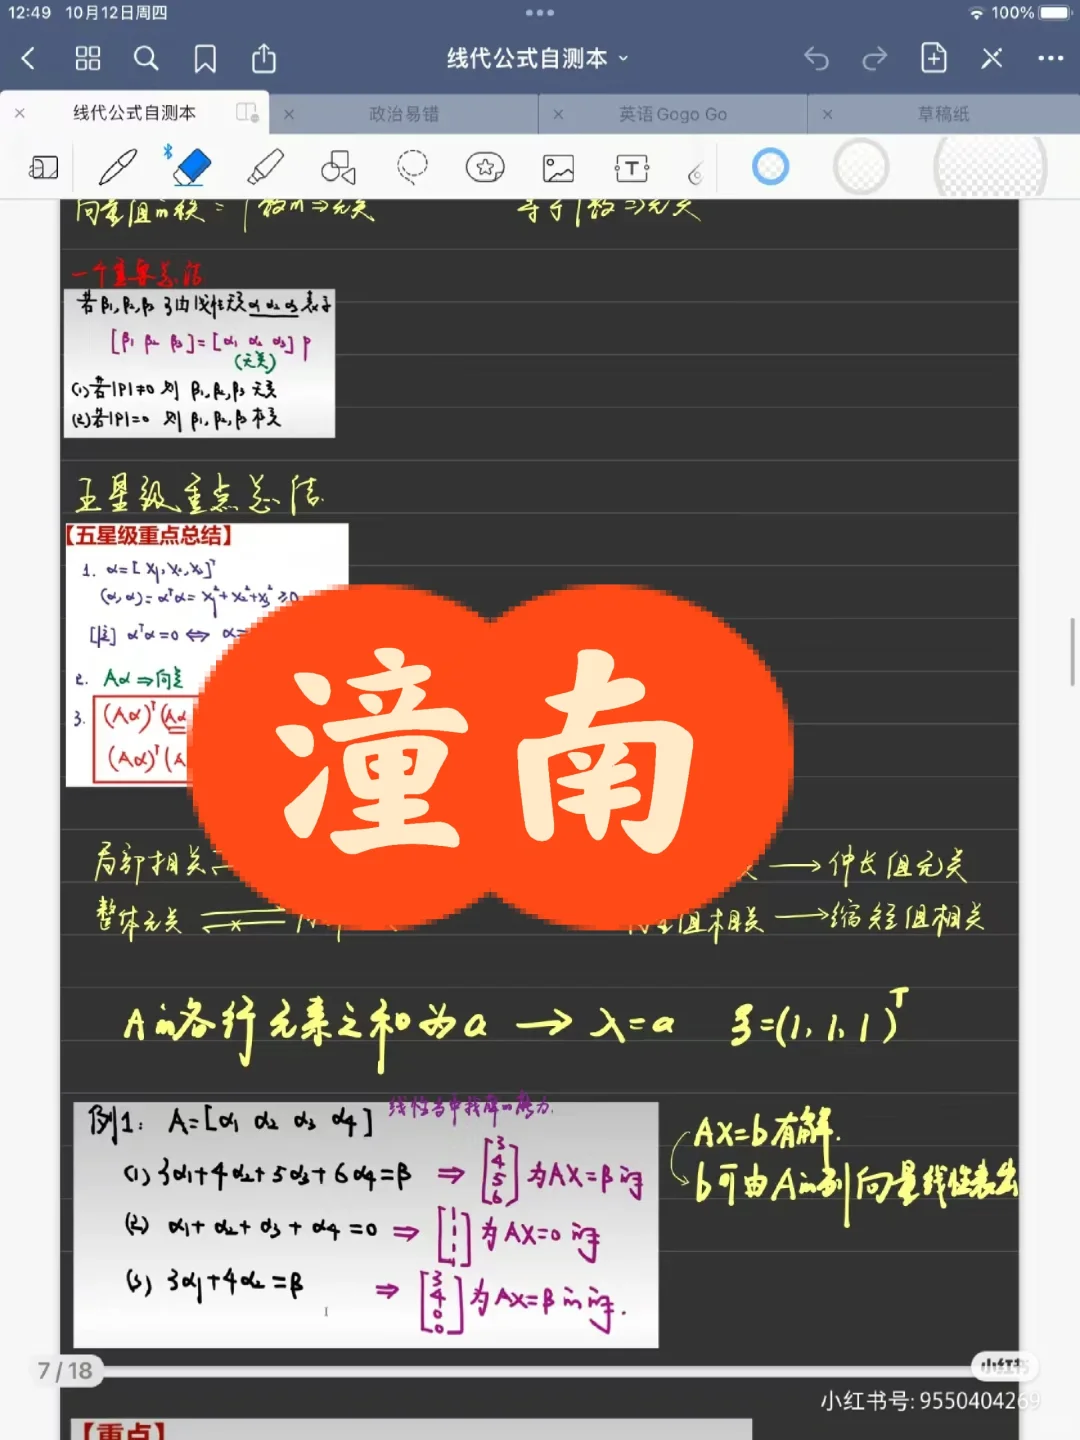 12:49 10月12日周四
100%
线代公式自测本
线代公式自测本 政治易错 英语Gogo Go 草稿纸
一个重要总结
若β1,β2,β3可由线性无关α1 α2 α3表示
[β1 β2 β3]=[α1 α2 α3] P
(无关)
(1)若|P|≠0 则 β1,β2,β3 无关
(2)若|P|=0 则 β1,β2,β3 相关
五星级重点总结
【五星级重点总结】
1. α=[x1,x2,x3]ᵀ
(α,α)=αᵀα=x1²+x2²+x3²≥0
[注] αᵀα=0 ⇔ α=
2. Aα⇒向量
3. (Aα)ᵀ(Aα
(Aα)ᵀ(A
潼南
局部相关
→伸长组无关
整体无关
组相关→缩短组相关
A的各行元素之和为a → λ=a ξ=(1,1,1)ᵀ
线性当中找解的能力.
例1: A=[α1 α2 α3 α4]
(1) 3α1+4α2+5α3+6α4=β ⇒ [3 4 5 6] 为AX=β的解
(2) α1+α2+α3+α4=0 ⇒ [1 1 1 1] 为AX=0的解
(3) 3α1+4α2=β ⇒ [3 4 0 0] 为AX=β的解.
AX=b有解.
b可由A的列向量线性表出
7/18
小红书
小红书号: 9550404269
【重点】